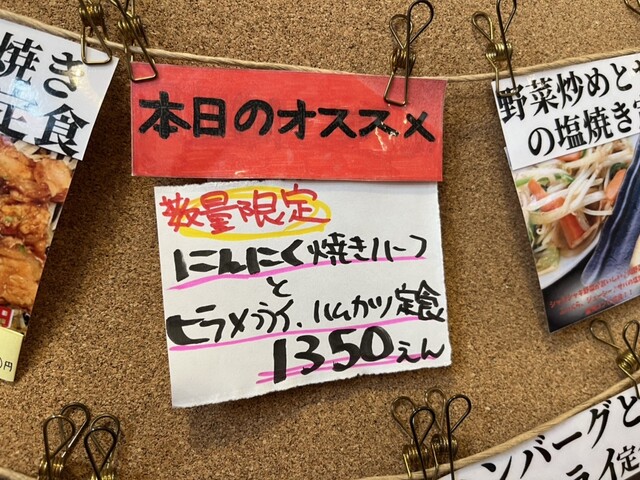 焼き
定食
円
本日のオススメ
数量限定
にんにく焼きハーフ
と
ヒラメフライ、ハムカツ定食
1350えん
野菜炒めと
の塩焼き
ンバーグと
イ定